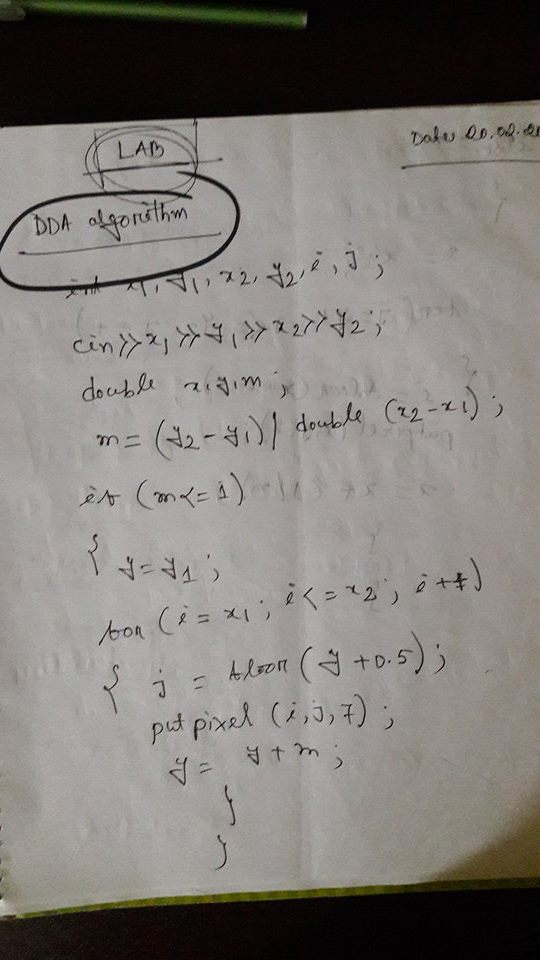 LAB
Date 20.02.20
DDA algorithm
int x1, y1, x2, y2, i, j ;
cin>>x1>>y1>>x2>>y2;
double x,y,m ;
m = (y2-y1)/ double (x2-x1) ;
if (m<=1)
{ y=y1 ;
for (i = x1 ; i<=x2 ; i++)
{ j = floor (y+0.5) ;
putpixel (i,j,7) ;
y = y+m ;
}
}